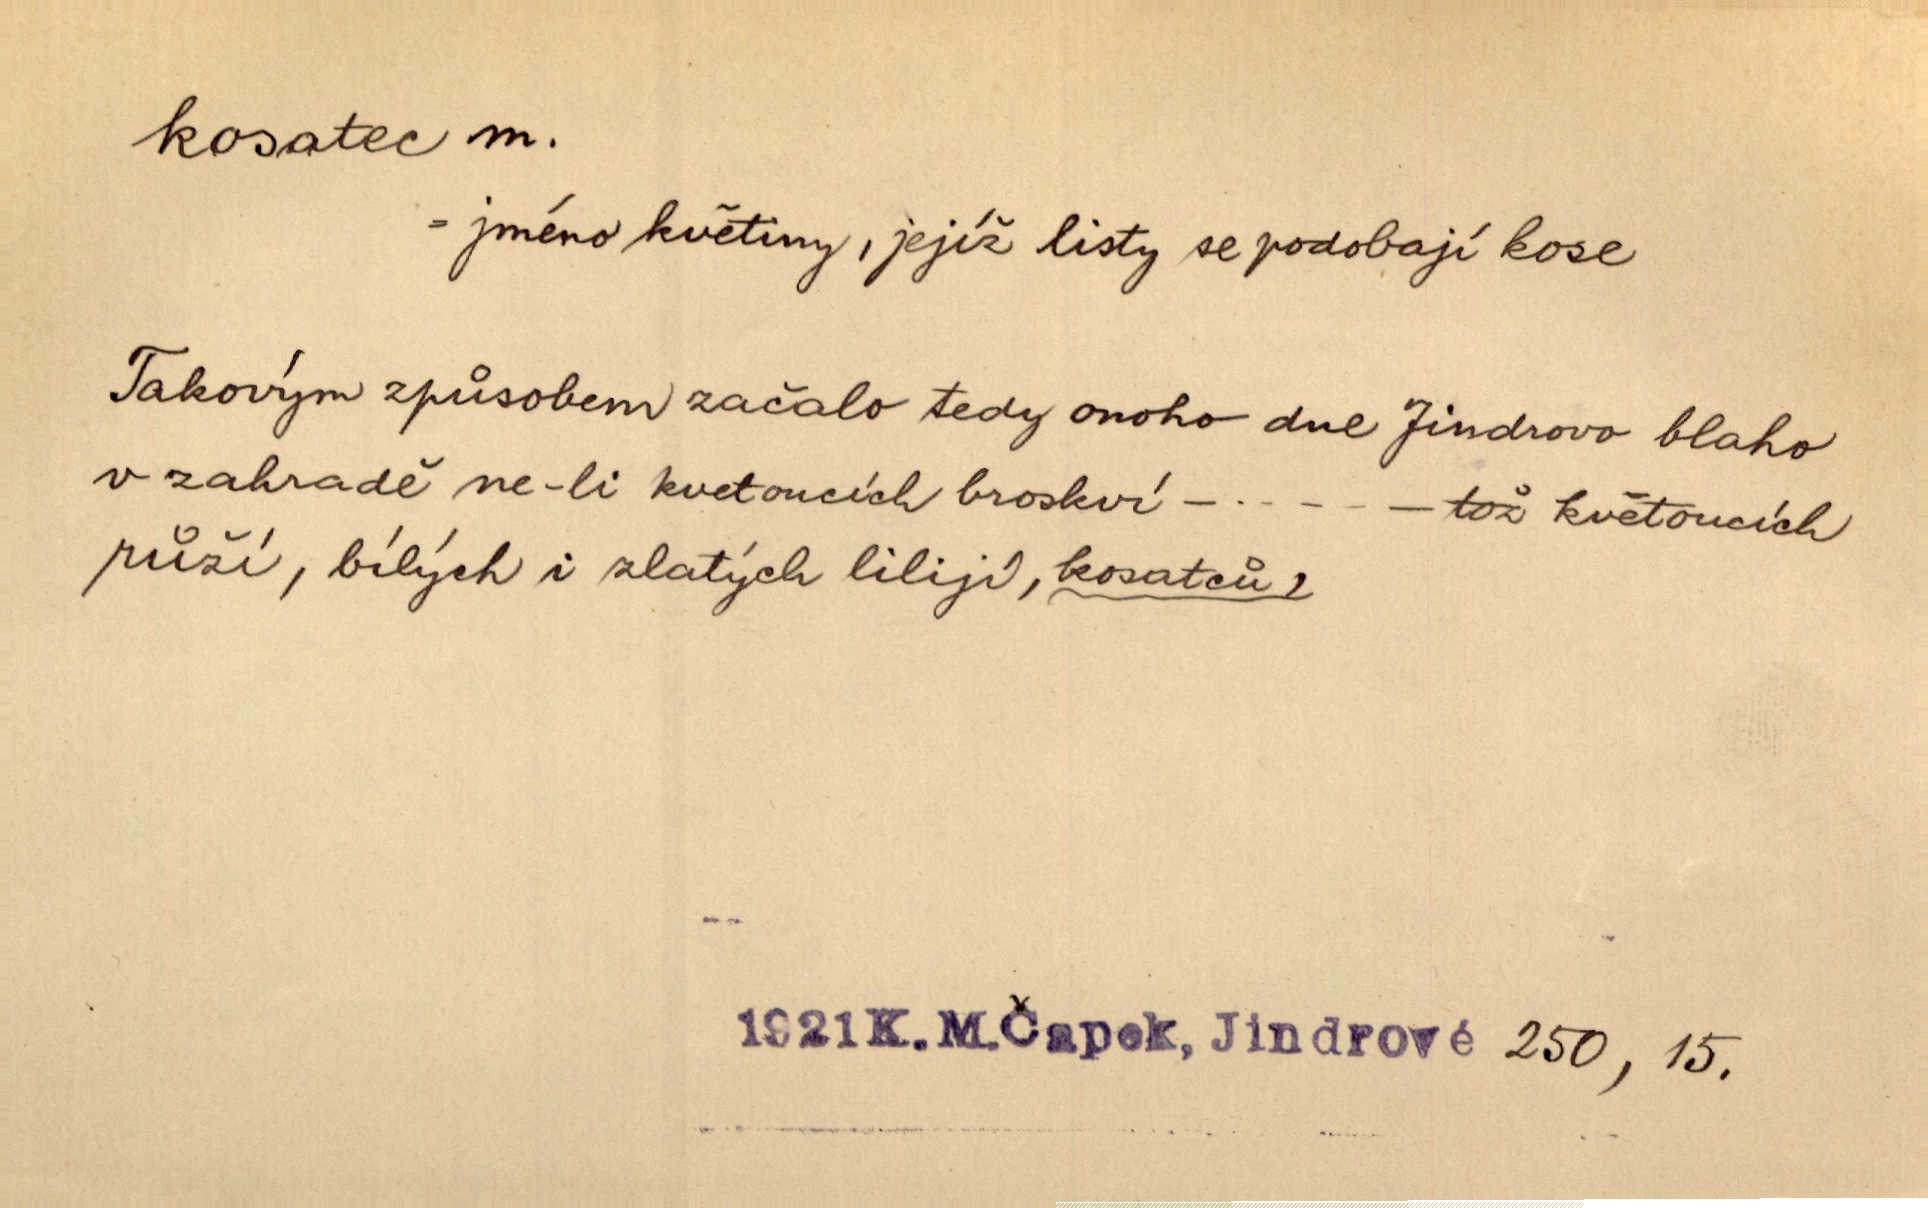 kosatec m.
= jméno květiny, jejíž listy se podobají kose
Takovým způsobem začalo tedy onoho dne Jindrovo blaho
v zahradě ne-li kvetoucích broskví — . - - - — tož květoucích
růží, bílých i zlatých lilijí, kosatců,
1921 K. M. Čapek, Jindrové 250, 15.